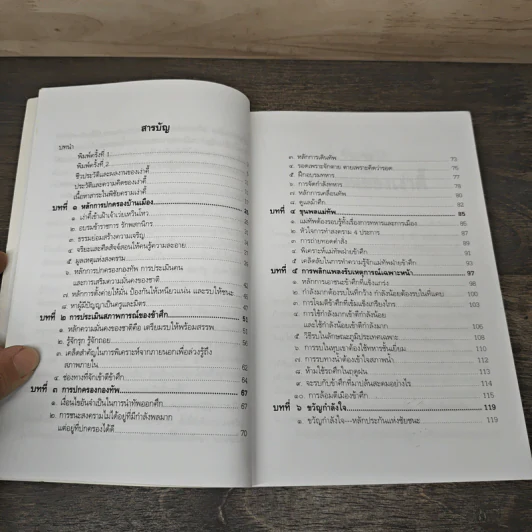 สารบัญ
บทนำ
พิมพ์ครั้งที่ 1
พิมพ์ครั้งที่ 2
ชีวประวัติและผลงานของเงาตี้
ประวัติและความคิดของเงาตี้
เนื้อหาสาระในพิชัยครามเงาตี้
บทที่ ๑ หลักการปกครองบ้านเมือง
๑. เก่าตี้เข้าเฝ้าเจ้าเว่ยเหวินโหว
๒. อบรมข้าราชการ รักพสกนิกร
๓. ธรรมย่อมสร้างความเจริญ
๔. จริยะและศีลสัจจ์สอนให้คนรู้ความละอาย
๕. มูลเหตุแห่งสงคราม
๖. หลักการปกครองกองทัพ การประเมินคน
และการเสริมความมั่นคงของชาติ
๗. หลักการตั้งค่ายให้มั่น ป้องกันให้เหนียวแน่น และรบให้ชนะ
๘. หาผู้มีปัญญาเป็นครูและมิตร
บทที่ ๒ การประเมินสภาพการณ์ของข้าศึก 51
๑. หลักความมั่นคงของชาติคือ เตรียมรบให้พร้อมสรรพ
๒. รู้จักรุก รู้จักถอย
๓. เคล็ดสำคัญในการพิเคราะห์จากภายนอกเพื่อล่วงรู้ถึง
สภาพภายใน 62
๔. ช่องทางที่จักเข้าตีข้าศึก 64
บทที่ ๓ การปกครองกองทัพ 67
๑. เงื่อนไขอันจำเป็นในการนำทัพออกศึก
๒. การชนะสงครามไม่ได้อยู่ที่มีกำลังพลมาก
แต่อยู่ที่ปกครองได้ดี 70
๓. หลักการเดินทัพ 73
๔. รอดเพราะจักตาย ตายเพราะคิดว่ารอด 75
๕. ฝึกอบรมทหาร 77
๖. การจัดกำลังทหาร 78
๗. หลักการเคลื่อนทัพ 80
๘. ดูแลม้าศึก 82
บทที่ ๔ ขุนพลแม่ทัพ 85
๑. แม่ทัพต้องรอบรู้ทั้งเรื่องการทหารและการเมือง 85
๒. หัวใจการทำสงคราม ๔ ประการ
๓. การถ่ายทอดคำสั่ง
๔. พิเคราะห์แม่ทัพฝ่ายข้าศึก 91
๕. เคล็ดลับในการทำความรู้จักแม่ทัพฝ่ายข้าศึก 93
บทที่ ๕ การพลิกแพลงรับเหตุการณ์เฉพาะหน้า 97
๑. หลักการเอาชนะข้าศึกที่แข็งแกร่ง
๒. กำลังมากต้องรบในที่กว้าง กำลังน้อยต้องรบในที่แคบ
๓. การโจมตีข้าศึกที่เข้มแข็งเกรียงไกร
๔. การใช้กำลังมากเข้าตีกำลังน้อย
และใช้กำลังน้อยเข้าตีกำลังมาก 106
๕. วิธีรบในลักษณะภูมิประเทศเฉพาะ 108
๖. การรบในหุบเขาต้องใช้ทหารชั้นเยี่ยม 110
๗. การรบทางน้ำต้องเข้าใจสภาพน้ำ 112
๘. ห้ามใช้รถศึกในฤดูฝน 113
๙. จะรบกับข้าศึกที่มาปล้นสะดมอย่างไร 114
๑๐. การล้อมตีเมืองข้าศึก 115
บทที่ ๖ ขวัญกำลังใจ 119
๑. ขวัญกำลังใจ—หลักประกันแห่งชัยชนะ 119